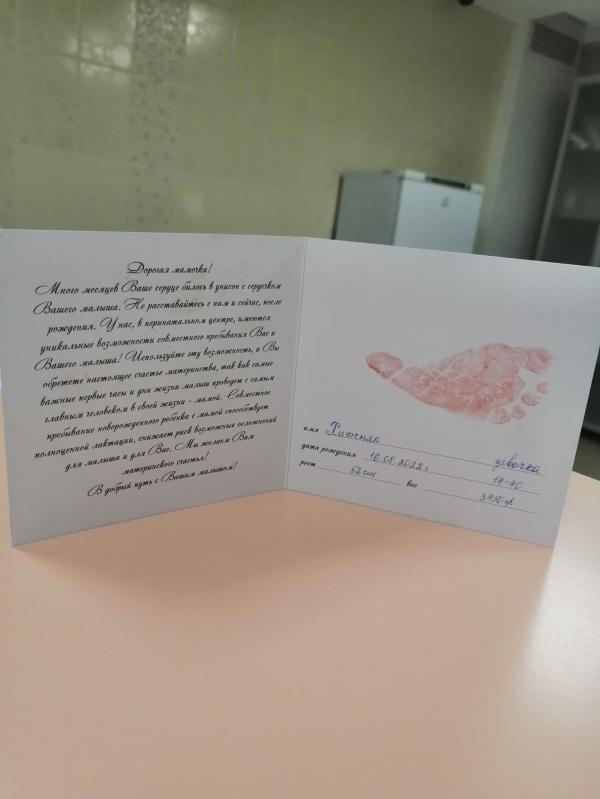 Дорогая мамочка!
Много месяцев Ваше сердце билось в унисон с сердечком
Вашего малыша. Не расставайтесь с ним и сейчас, после
рождения. У нас, в перинатальном центре, имеются
уникальные возможности совместного пребывания Вас и
Вашего малыша! Используйте эту возможность, и Вы
обретете настоящее счастье материнства, так как самые
важные первые часы и дни жизни малыш проведет с самым
главным человеком в своей жизни - мамой. Совместное
пребывание новорожденного ребенка с мамой способствует
полноценной лактации, снижает риск возможных осложнений
для малыша и для Вас. Мы желаем Вам
материнского счастья!
В добрый путь с Вашим малышом!
имя Хитеняк девочка
дата рождения 16.08.2022 г 14-40
рост 52 см вес 3450 гр